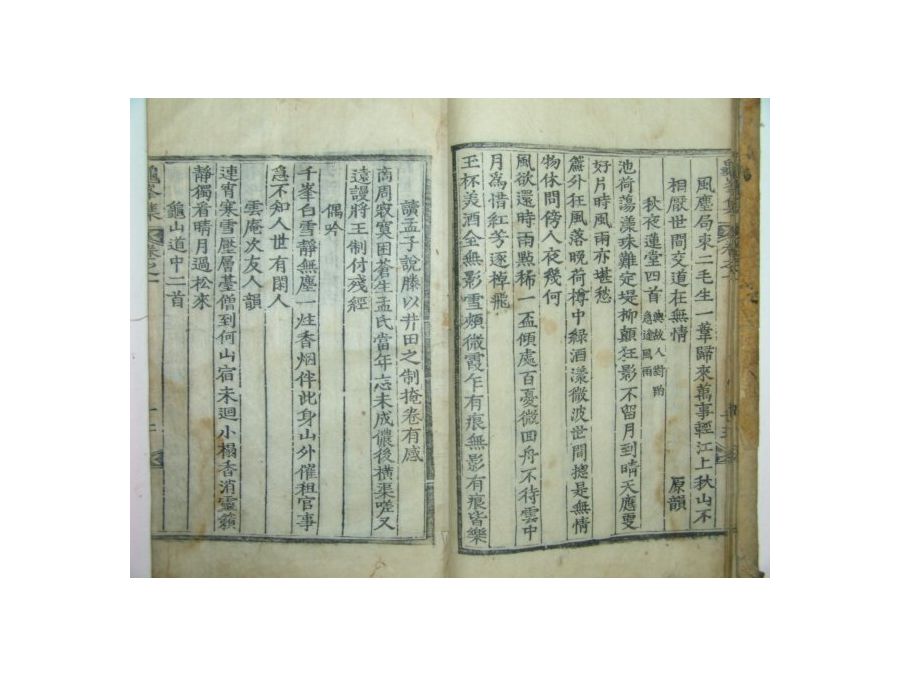 風塵局束二毛生一葦歸來萬事輕江上秋山不
相厭世間交道在無情 原韻
秋夜蓮堂四首
池荷蕩漾珠難定堤柳顛狂影不留月到晴天應更
好片時風雨亦堪愁
簾外狂風落晚荷樽中綠酒漾微波世間摠是無情
物休問傍人夜幾何
風欲還時雨點稀一盃傾處百憂微回舟不待雲中
月爲惜紅芳逐棹飛
玉杯美酒全無影雪頰微霞乍有痕無影有痕皆樂
讀孟子說滕以井田之制掩卷有感
商周寂寞困蒼生孟氏當年志未成儂後橫渠嗟又
遠謾將王制付殘經
偶吟
千峯白雪靜無塵一炷香烟伴此身山外催租官事
急不知人世有閑人
雲庵次友人韻
連宵寒雪壓層臺僧到何山宿未迴小榻香消靈籟
靜獨看晴月過松來
龜山道中二首
龜峯集 卷之一